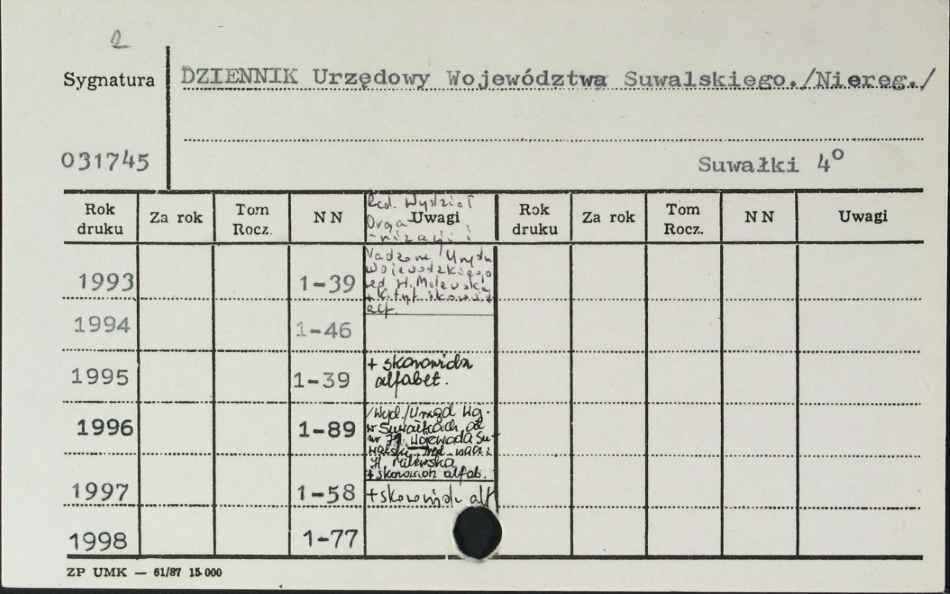 2
Sygnatura DZIENNIK Urzędowy Województwa Suwalskiego./Niereg./
031745 Suwałki 4º
Rok druku Za rok Tom Rocz. NN Uwagi Rok druku Za rok Tom Rocz. NN Uwagi
Red. Wydział
Orga
-nizacji i
Nadzoru Urzędu
Wojewódzkiego
red. H. Milewska
1993 1-39
+ K. tyt. skorowidz
alf.
1994 1-46
1995 1-39 + skorowidz
alfabet.
1996 1-89 /Wyd./Urząd Wg.
w Suwałkach, od
nr Wojewoda Su-
walski, red.
H. Milewska
+ skorowidz alfab.
1997 1-58 + skorowidz alf
1998 1-77
ZP UMK — 61/87 15 000